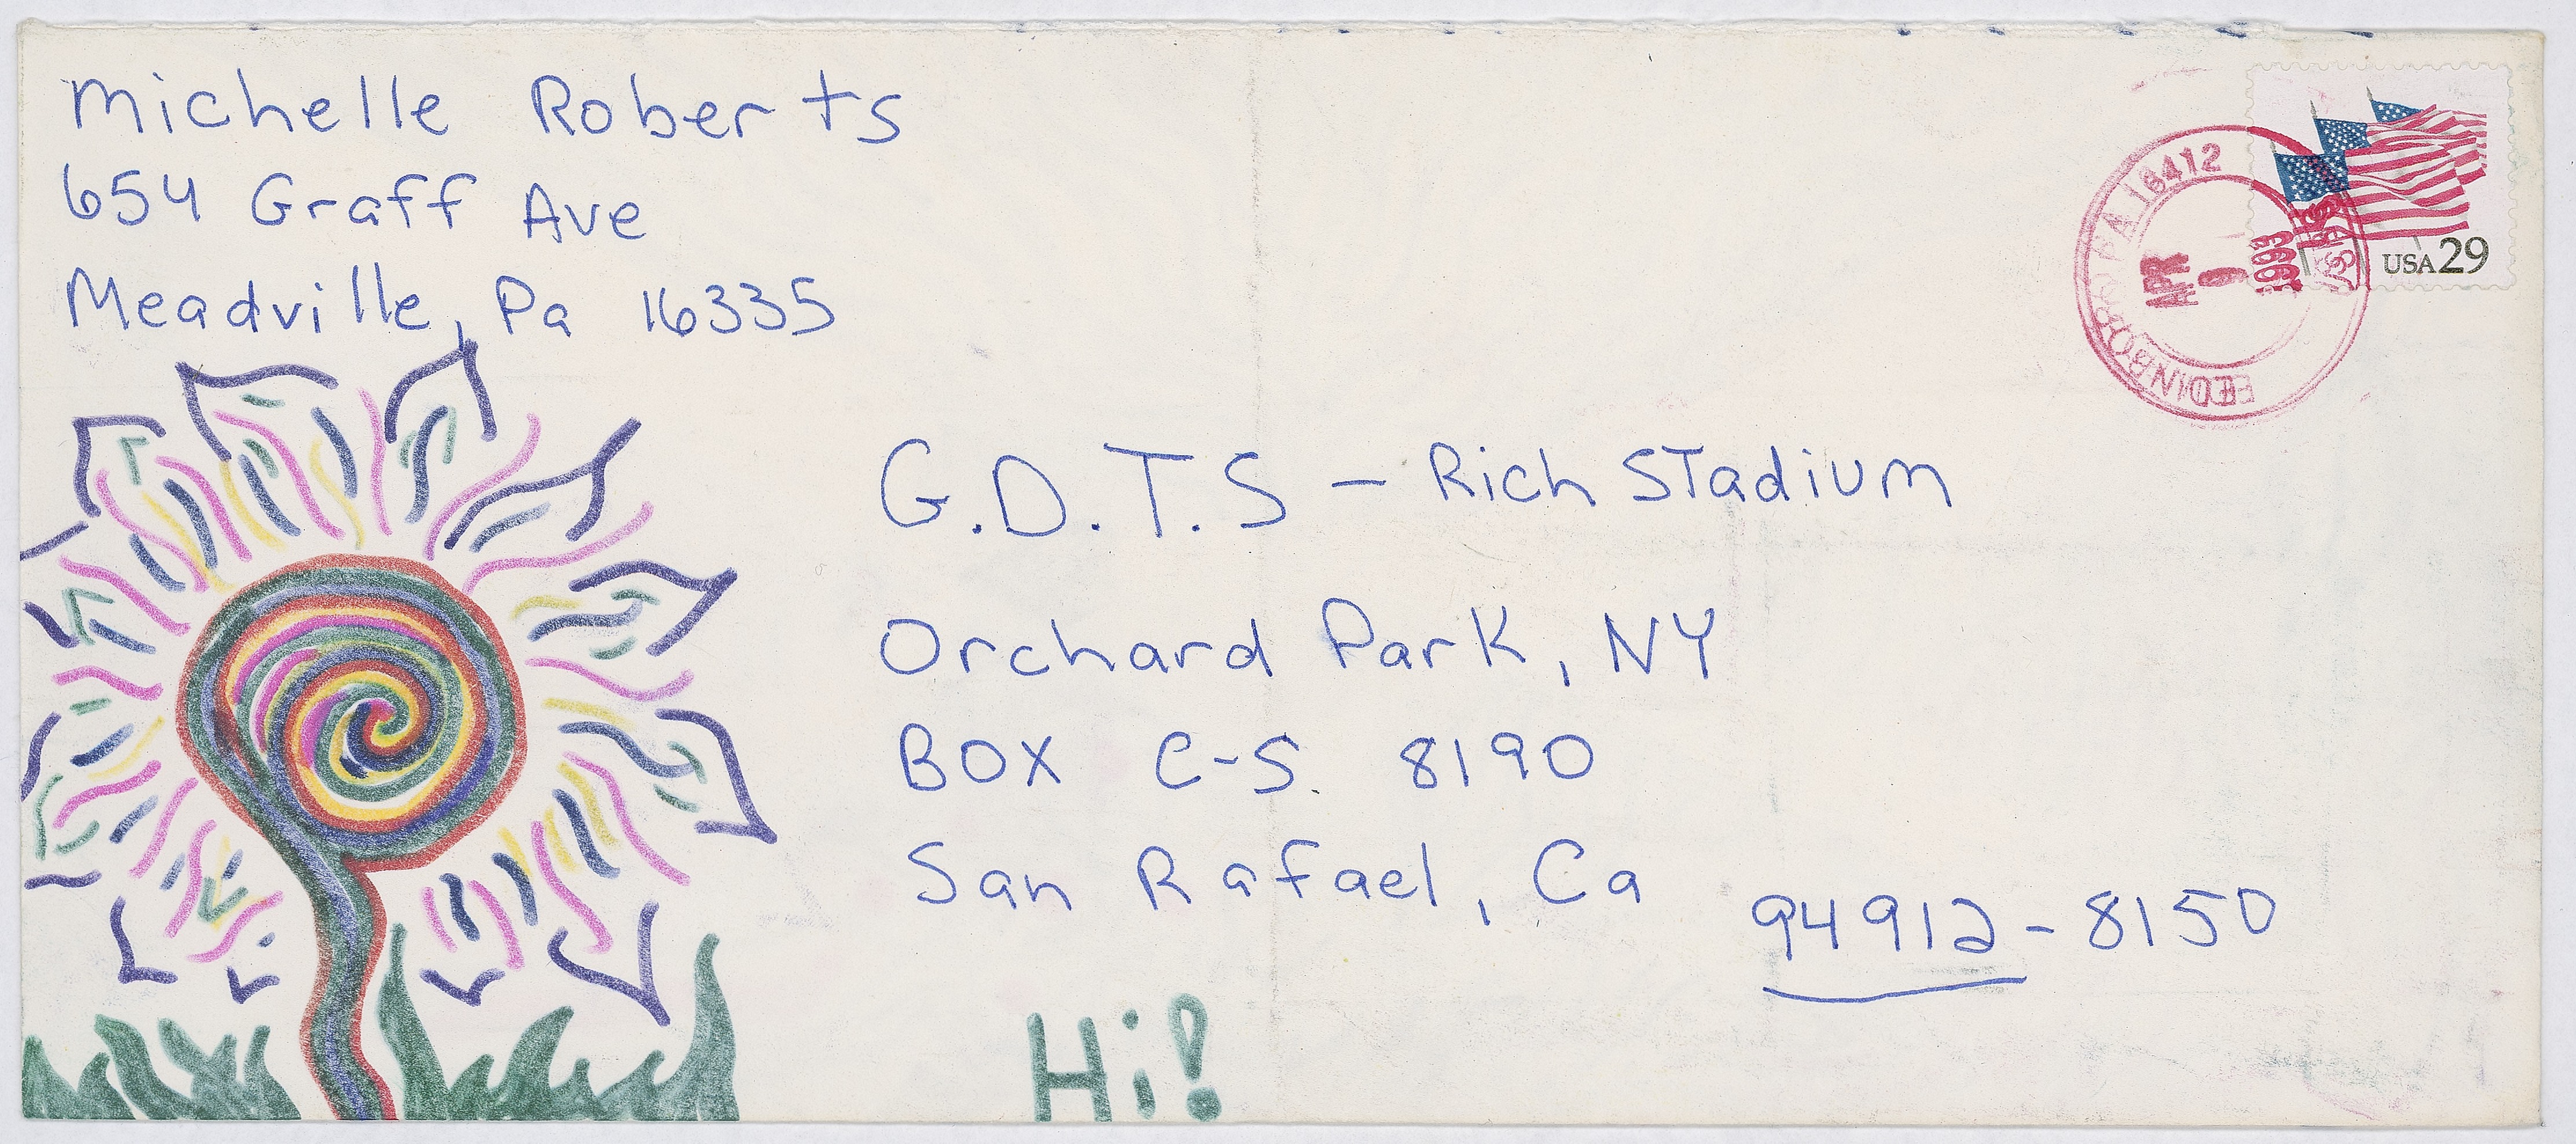 Michelle Roberts
654 Graff Ave
Meadville, Pa 16335
USA 29
EDINBORO PA 16412
APR 9 1993
G.D.T.S - Rich Stadium
Orchard Park, NY
BOX C-S 8190
San Rafael, Ca 94912-8150
Hi!